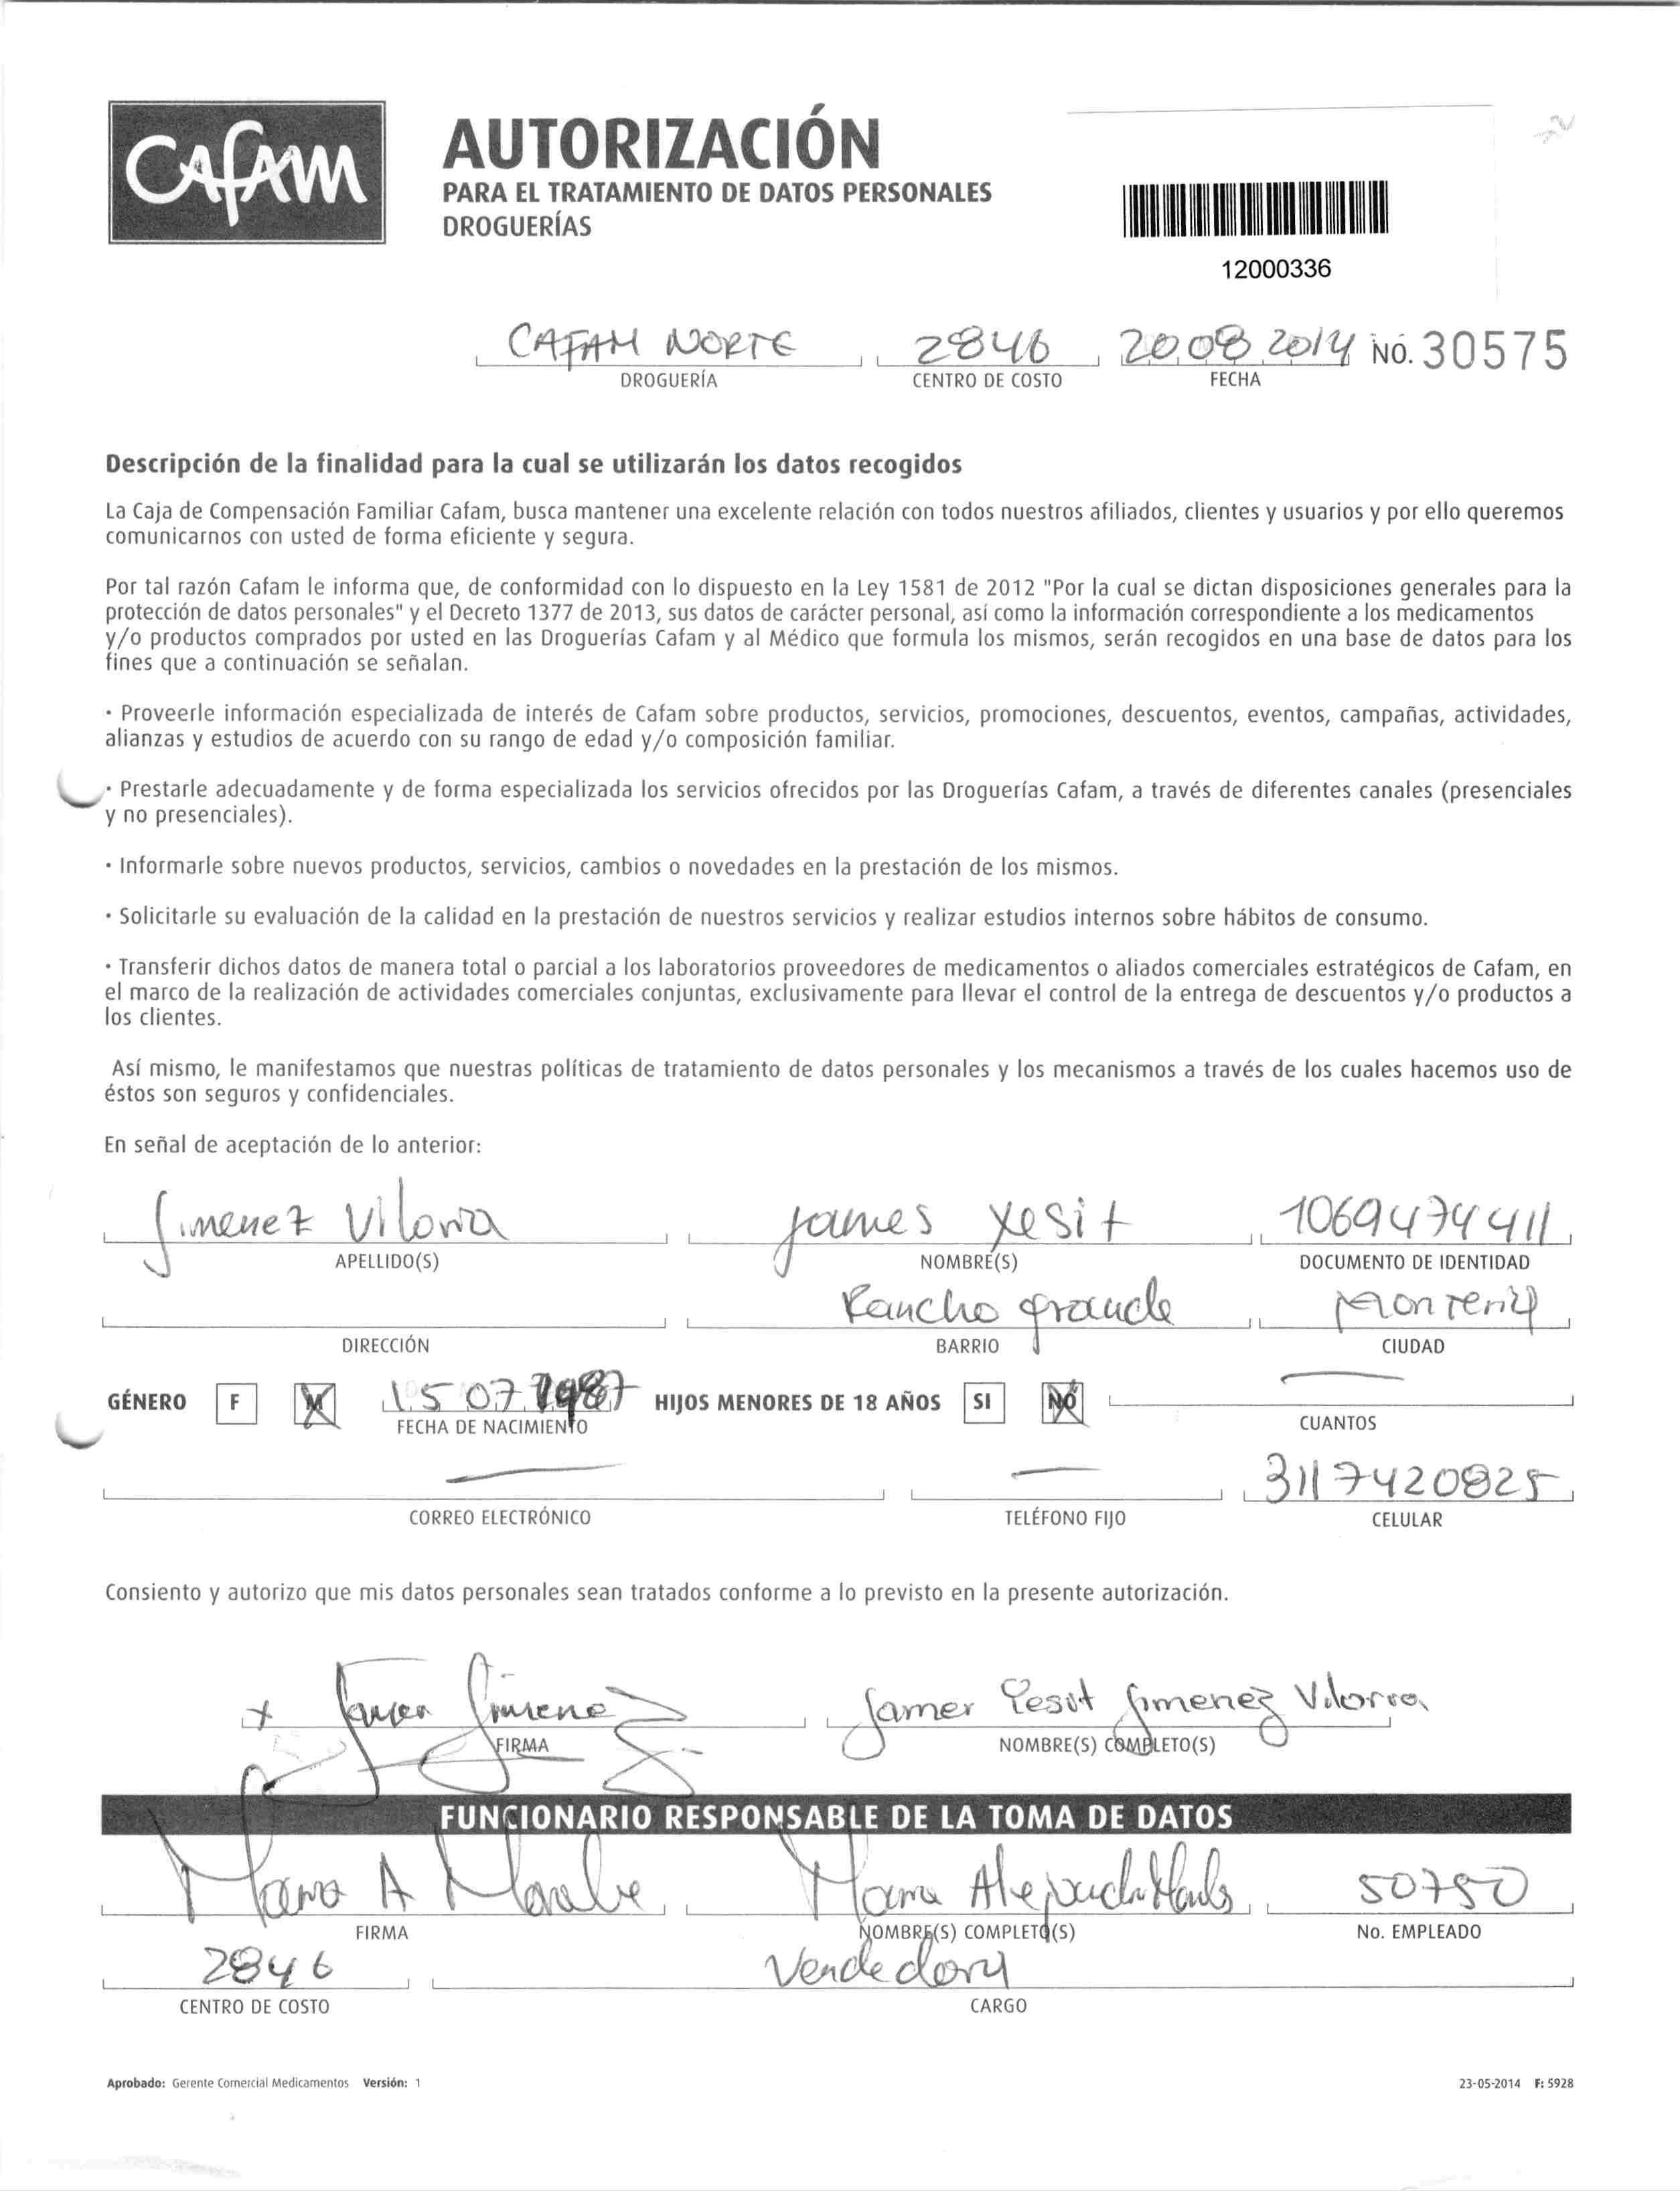 Cafam
AUTORIZACIÓN
PARA EL TRATAMIENTO DE DATOS PERSONALES
DROGUERÍAS
12000336
CAFAM NORTE 2846 20 08 2014 NO. 30575
DROGUERÍA CENTRO DE COSTO FECHA
Descripción de la finalidad para la cual se utilizarán los datos recogidos
La Caja de Compensación Familiar Cafam, busca mantener una excelente relación con todos nuestros afiliados, clientes y usuarios y por ello queremos
comunicarnos con usted de forma eficiente y segura.
Por tal razón Cafam le informa que, de conformidad con lo dispuesto en la Ley 1581 de 2012 "Por la cual se dictan disposiciones generales para la
protección de datos personales" y el Decreto 1377 de 2013, sus datos de carácter personal, así como la información correspondiente a los medicamentos
y/o productos comprados por usted en las Droguerías Cafam y al Médico que formula los mismos, serán recogidos en una base de datos para los
fines que a continuación se señalan.
· Proveerle información especializada de interés de Cafam sobre productos, servicios, promociones, descuentos, eventos, campañas, actividades,
alianzas y estudios de acuerdo con su rango de edad y/o composición familiar.
· Prestarle adecuadamente y de forma especializada los servicios ofrecidos por las Droguerías Cafam, a través de diferentes canales (presenciales
y no presenciales).
· Informarle sobre nuevos productos, servicios, cambios o novedades en la prestación de los mismos.
· Solicitarle su evaluación de la calidad en la prestación de nuestros servicios y realizar estudios internos sobre hábitos de consumo.
· Transferir dichos datos de manera total o parcial a los laboratorios proveedores de medicamentos o aliados comerciales estratégicos de Cafam, en
el marco de la realización de actividades comerciales conjuntas, exclusivamente para llevar el control de la entrega de descuentos y/o productos a
los clientes.
Así mismo, le manifestamos que nuestras políticas de tratamiento de datos personales y los mecanismos a través de los cuales hacemos uso de
éstos son seguros y confidenciales.
En señal de aceptación de lo anterior:
Jimenez Viloria james Yesit 1069474411
APELLIDO(S) NOMBRE(S) DOCUMENTO DE IDENTIDAD
Rancho grande Monteria
DIRECCIÓN BARRIO CIUDAD
GÉNERO F M 15 07 1987 HIJOS MENORES DE 18 AÑOS SI NO
FECHA DE NACIMIENTO CUANTOS
3117420825
CORREO ELECTRÓNICO TELÉFONO FIJO CELULAR
Consiento y autorizo que mis datos personales sean tratados conforme a lo previsto en la presente autorización.
x Jamer Jimenez Jamer Yesit Jimenez Viloria
FIRMA NOMBRE(S) COMPLETO(S)
FUNCIONARIO RESPONSABLE DE LA TOMA DE DATOS
Maria A Maria 50750
FIRMA NOMBRE(S) COMPLETO(S) No. EMPLEADO
2846 Vendedora
CENTRO DE COSTO CARGO
Aprobado: Gerente Comercial Medicamentos Versión: 1 23-05-2014 F: 5928